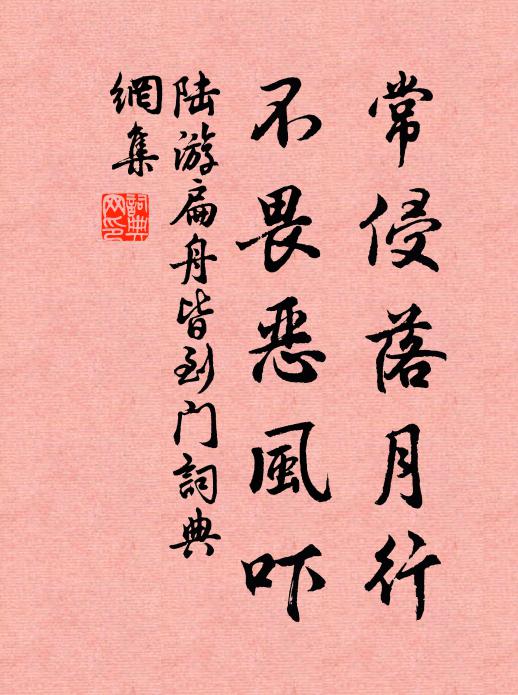 常侵落月行
不畏恶風吓
陆游扁舟皆到门詞典
網集
詞典
网印